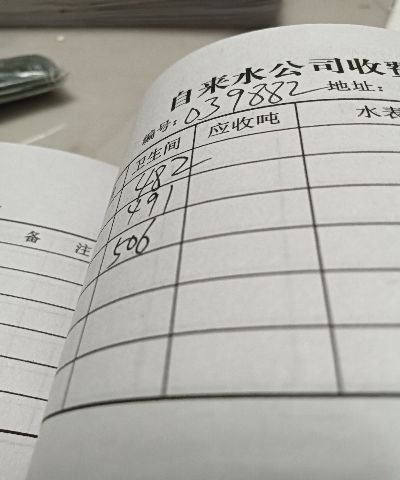 自来水公司收费
编号: 039882 地址:
卫生间 应收吨 水表
482
491
506
备 注